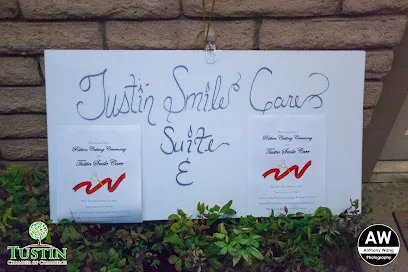 Tustin Smile Care
Suite
E
Ribbon Cutting Ceremony
Tustin Smile Care
Ribbon Cutting Ceremony
Tustin Smile Care
TUSTIN
CHAMBER OF COMMERCE
AW
Anthony Wang
Photography